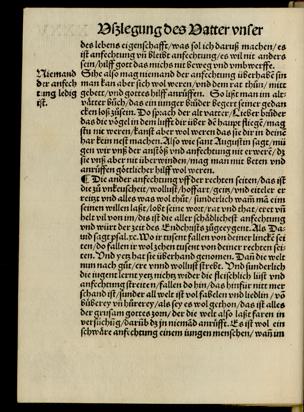 Vßlegung des Vatter vnser
des lebens eigenschafft/was sol ich daruß machen/es
ist anfechtung vñ bleibt anfechtung/es wil mit anders
sein/hilff gott das michs nit beweg vnd vmbwerffe.
Niemand
der anfech
tung ledig
ist.
Sihe also mag niemand der anfechtung überhabẽ sin
man kan aber sich wol weren/vnd dem rat thůn/mitt
gebett/vnd gottes hilff anrüffen. So lißt man im alt
våtter bůch/das ein iunger brůder begert seiner gedan
cken loß zůsein. Do sprach der alt vatter/Lieber brůder
das die vögel in dem lufft dir über dē haupt fliegē/mag
stu nit weren/kanst aber wol weren das sie dir in deinē
har kein nest machen. Also wie sant Augustin sagt/mü
gen wir vnß der anstöß vnd anfechtung nit erwerē/dz
sie vnß aber nit überwinden/mag man mit beten vnd
anrüffen göttlicher hilff wol weren.
¶ Die ander anfechtung vff der rechten seiten/das ist
die zů vnkeuscheit/wollust/hoffart/geitz/vnd eiteler er
reitzt vnd alles was wol thůt/sunderlich wañ mā eim
seinen willen laßt/lobt seine wort/rat vnd that/eret vñ
helt vil von im/dis ist die aller schådlichest anfechtung
vnd würt der zeit des Endchrists zůgeeygent. Als Da-
uid sagt psal.xc. Wo ir tusent fallen von deiner lincke sei
ten/do fallen ir wol zehen tusent von deiner rechten sei
ten. Vnd yetz hat sie überhand genomen. Dañ die welt
nun nach gůt/ere vnnd wollust strebt. Vnd sunderlich
die iugent lernt yetz nichts wider die fleischlich lüst vnd
anfechtung streiten/fallen do hin/das hinfür nitt mer
schand ist/sunder all welt ist vol fabelen vnd liedlin/vō
bůberey vñ hůrerey/als sey es wol gethon/das ist alles
der grusam gottes zorn/der die welt also laßt faren in
versůchūg/darūb dz in niemād anrüfft. Es ist wol ein
schwåre anfechtung einem iungen menschen/wañ im